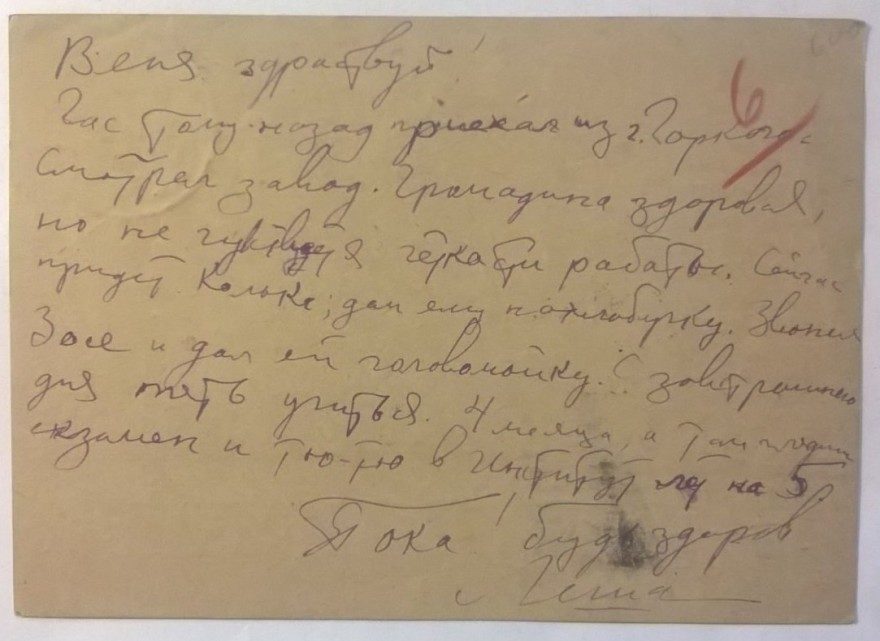 Веня здраствуй!
6
Час тому назад приехал из г. Горкого.
Смотрел завод. Громадина здоровая,
но не чувствуется чёткости работы. Сейчас
придёт Колька, дам ему нахлобучку. Звонил
Зое и дал ей головомойку. С завтрашнего
дня опять учиться. 4 месяца, а там
экзамен и тю-тю в Институт лет на 5
Пока! будь здоров
Геша